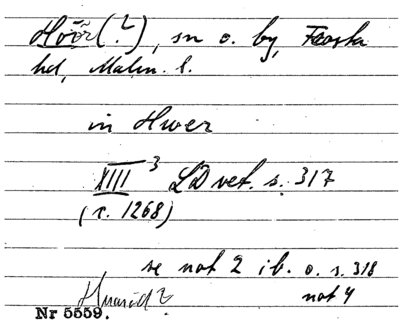 Höör (?), sn o. by, Frosta
hd, Malm. l.
in Hwer
XIII 3 LD vet. s. 317
(c. 1268)
se not 2 ib. o. s. 318
not 4
Nr 5559.